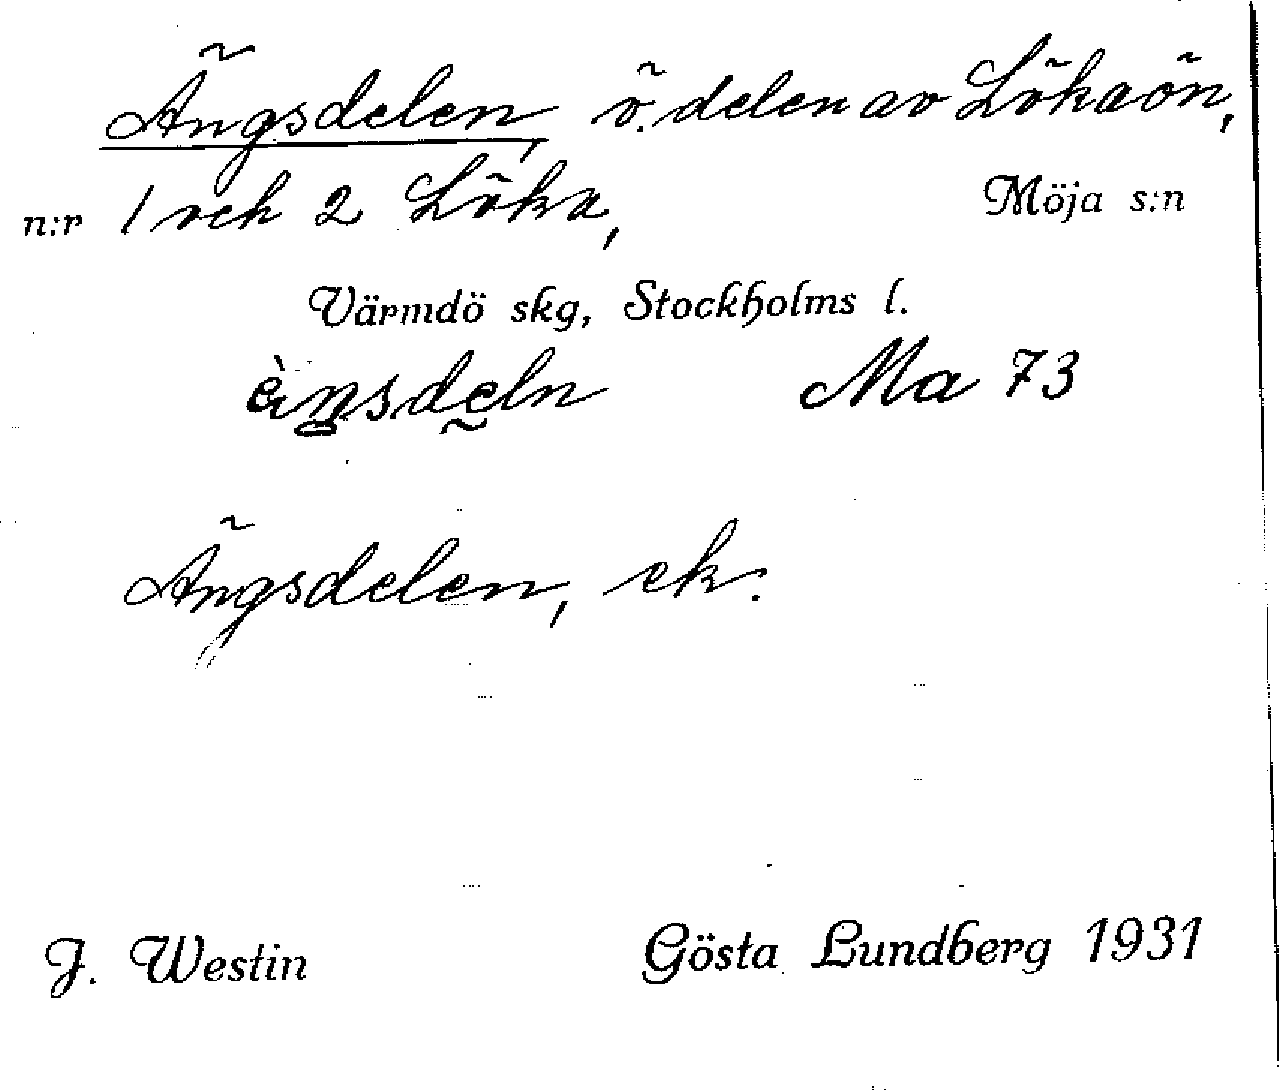 Ängsdelen, ö. delen av Lökaön,
n:r 1 och 2 Löka, Möja s:n
Värmdö skg, Stockholms l.
Ma 73
Ängsdelen, ek.
J. Westin Gösta Lundberg 1931